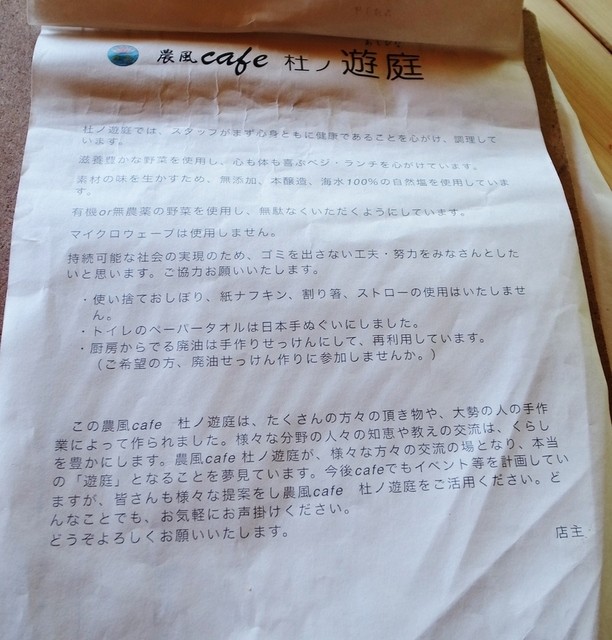 農風cafe 杜ノ 遊庭
杜ノ遊庭では、スタッフがまず心身ともに健康であることを心がけ、調理して
います。
滋養豊かな野菜を使用し、心も体も喜ぶベジ・ランチを心がけています。
素材の味を生かすため、無添加、本醸造、海水100%の自然塩を使用していま
す。
有機or無農薬の野菜を使用し、無駄なくいただくようにしています。
マイクロウェーブは使用しません。
持続可能な社会の実現のため、ゴミを出さない工夫・努力をみなさんとした
いと思います。ご協力お願いいたします。
・使い捨ておしぼり、紙ナフキン、割り箸、ストローの使用はいたしませ
ん。
・トイレのペーパータオルは日本手ぬぐいにしました。
・厨房からでる廃油は手作りせっけんにして、再利用しています。
（ご希望の方、廃油せっけん作りに参加しませんか。）
この農風cafe 杜ノ遊庭は、たくさんの方々の頂き物や、大勢の人の手作
業によって作られました。様々な分野の人々の知恵や教えの交流は、くらし
を豊かにします。農風cafe 杜ノ遊庭が、様々な方々の交流の場となり、本当
の「遊庭」となることを夢見ています。今後cafeでもイベント等を計画してい
ますが、皆さんも様々な提案をし農風cafe 杜ノ遊庭をご活用ください。ど
んなことでも、お気軽にお声掛けください。
どうぞよろしくお願いいたします。
店主